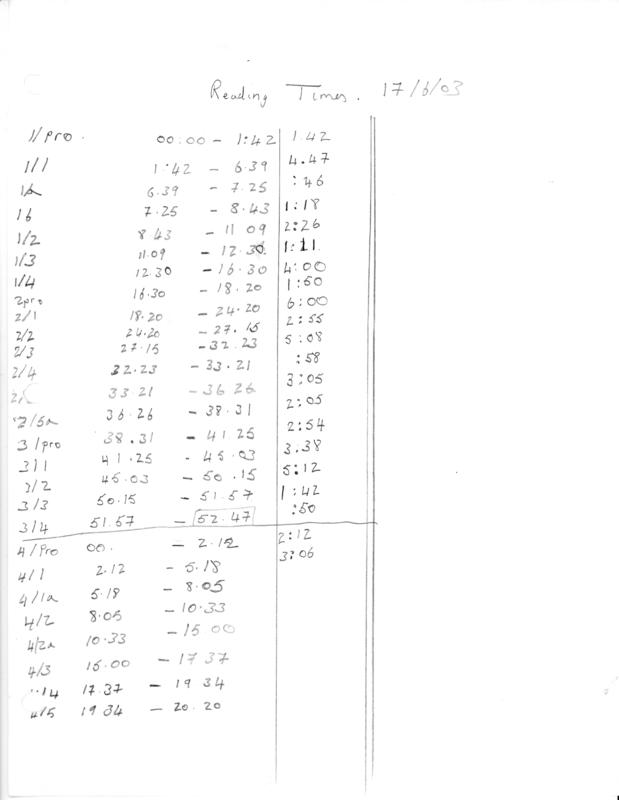 Reading Times. 17/6/03
1/pro. 00.00 - 1:42 1.42
1/1 1:42 - 6.39 4.47
1a 6.39 - 7.25 :46
1b 7.25 - 8.43 1:18
1/2 8 43 - 11 09 2:26
1/3 11.09 - 12.30. 1:11
1/4 12 30 - 16.30 4:00
2pro 16.30 - 18.20 1:50
2/1 18.20 - 24.20 6:00
2/2 24.20 - 27.15 2:55
2/3 27.15 - 32.23 5:08
2/4 32.23 - 33.21 :58
33 21 - 36 26 3:05
2/5a 36.26 - 38.31 2:05
3/pro 38.31 - 41 25 2:54
3/1 41.25 - 45.03 3.38
3/2 45.03 - 50.15 5:12
3/3 50.15 - 51.57 1:42
3/4 51.57 - 52.47 :50
4/pro 00. - 2.12 2:12
4/1 2.12 - 5.18 3:06
4/1a 5.18 - 8.05
4/2 8.05 - 10.33
4/2a 10.33 - 15 00
4/3 15.00 - 17 37
/4 17.37 - 19 34
4/5 19 34 - 20.20